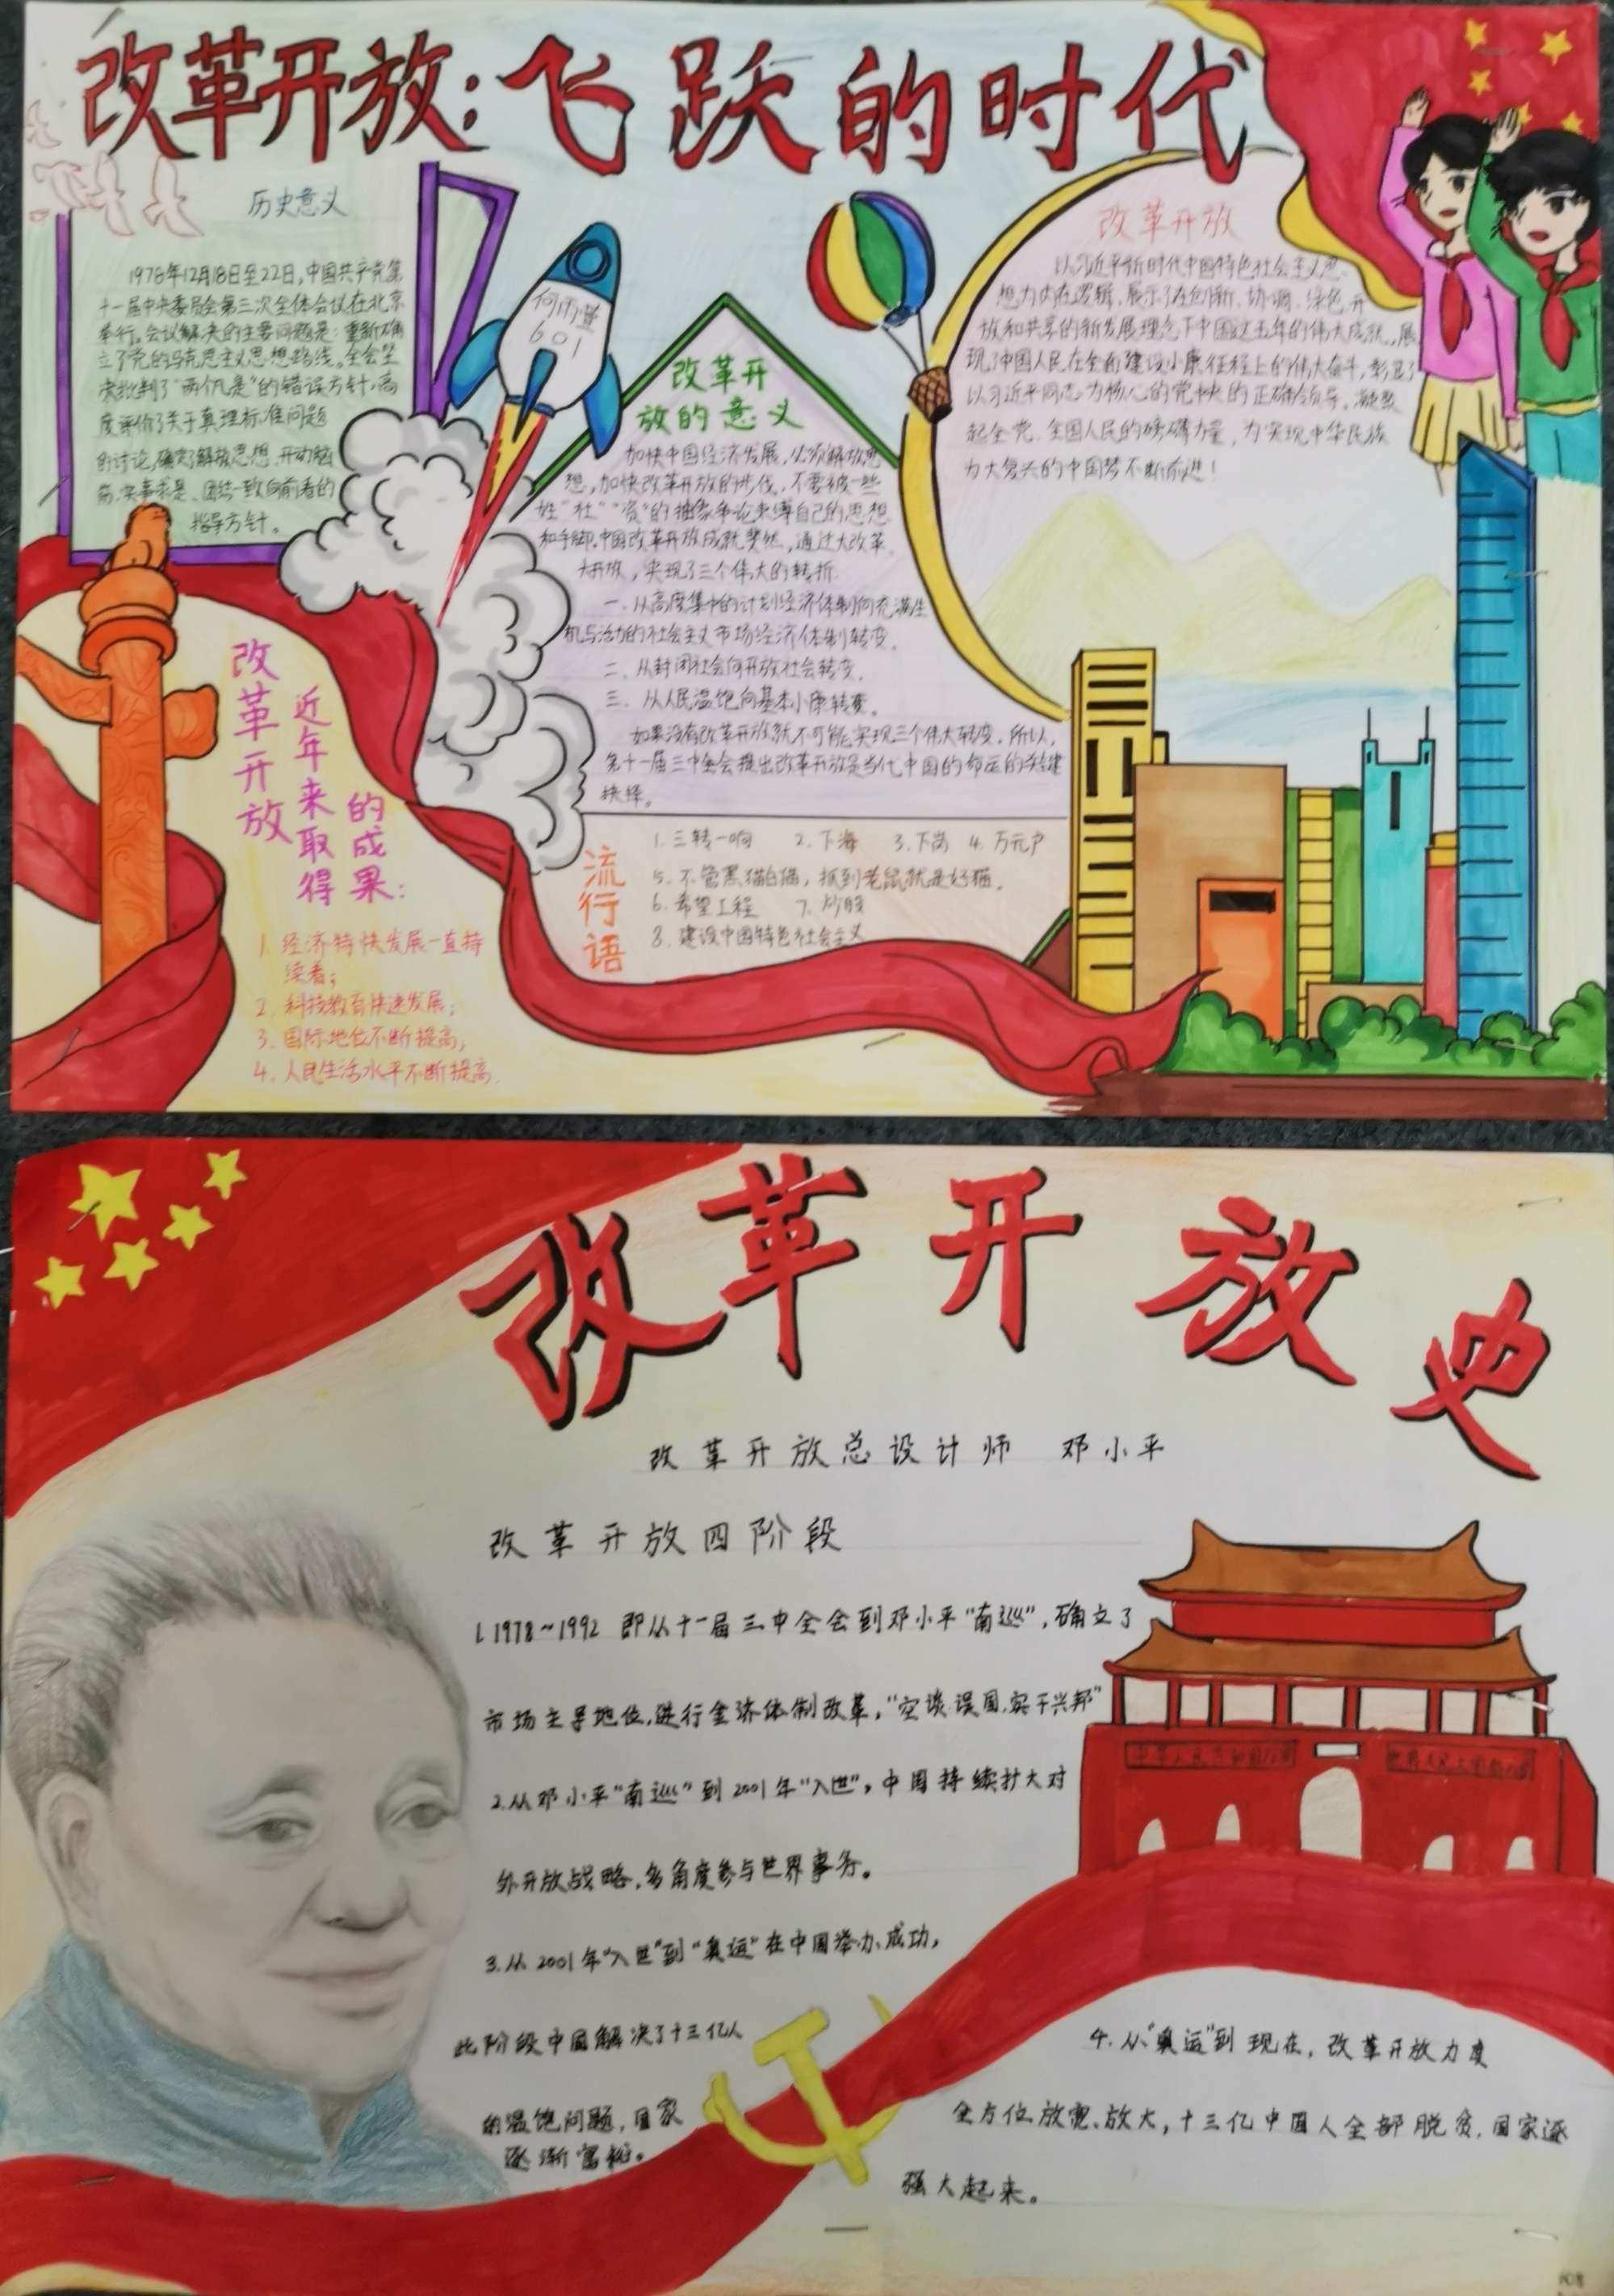 改革开放：飞跃的时代
历史意义
1978年12月18日至22日，中国共产党第
十一届中央委员会第三次全体会议在北京
举行。会议解决的主要问题是：重新确
立了党的马克思主义思想路线。全会坚
决批判了“两个凡是”的错误方针，高
度评价了关于真理标准问题
的讨论，确定了解放思想、开动脑
筋、实事求是、团结一致向前看的
指导方针。
601
改革开
放的意义
加快中国经济发展，必须解放思
想，加快改革开放的步伐，不要被一些
姓“社”“资”的抽象争论束缚自己的思想
和手脚。中国改革开放成就斐然，通过大改革、
大开放，实现了三个伟大的转折
一、从高度集中的计划经济体制向充满生
机与活力的社会主义市场经济体制转变。
二、从封闭社会向开放社会转变。
三、从人民温饱向基本小康转变。
如果没有改革开放，就不可能实现三个伟大转变。所以，
第十一届三中全会提出改革开放是当代中国的命运的关键
抉择。
改革开放
以习近平新时代中国特色社会主义思
想为内在逻辑，展示了在创新、协调、绿色、开
放和共享的新发展理念下中国这五年的伟大成就，展
现了中国人民在全面建设小康征程上的伟大奋斗，彰显了
以习近平同志为核心的党中央的正确领导，凝聚
起全党、全国人民的磅礴力量，为实现中华民族
伟大复兴的中国梦不断前进！
改革开放
近年来取得
的成果：
1. 经济特快发展一直持
续着；
2. 科技教育快速发展；
3. 国际地位不断提高；
4. 人民生活水平不断提高.
流行语
1. 三转一响 2. 下海 3. 下岗 4. 万元户
5. 不管黑猫白猫，抓到老鼠就是好猫。
6. 希望工程 7. 炒股
8. 建设中国特色社会主义
改革开放史
改革开放总设计师 邓小平
改革开放四阶段
1. 1978~1992 即从十一届三中全会到邓小平“南巡”，确立了
市场主导地位，进行经济体制改革，“空谈误国，实干兴邦”
2. 从邓小平“南巡”到2001年“入世”，中国持续扩大对
外开放战略，多角度参与世界事务。
3. 从2001年“入世”到“奥运”在中国举办成功，
此阶段中国解决了十三亿人
的温饱问题，国家
逐渐富裕。
4. 从“奥运”到现在，改革开放力度
全方位放宽、放大，十三亿中国人全部脱贫，国家逐
强大起来。